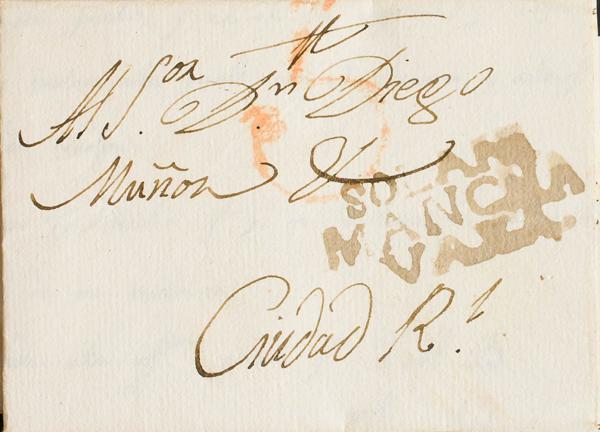 Al S.or D.n Diego
Muñoz &
MANCHA
Ciudad R.l